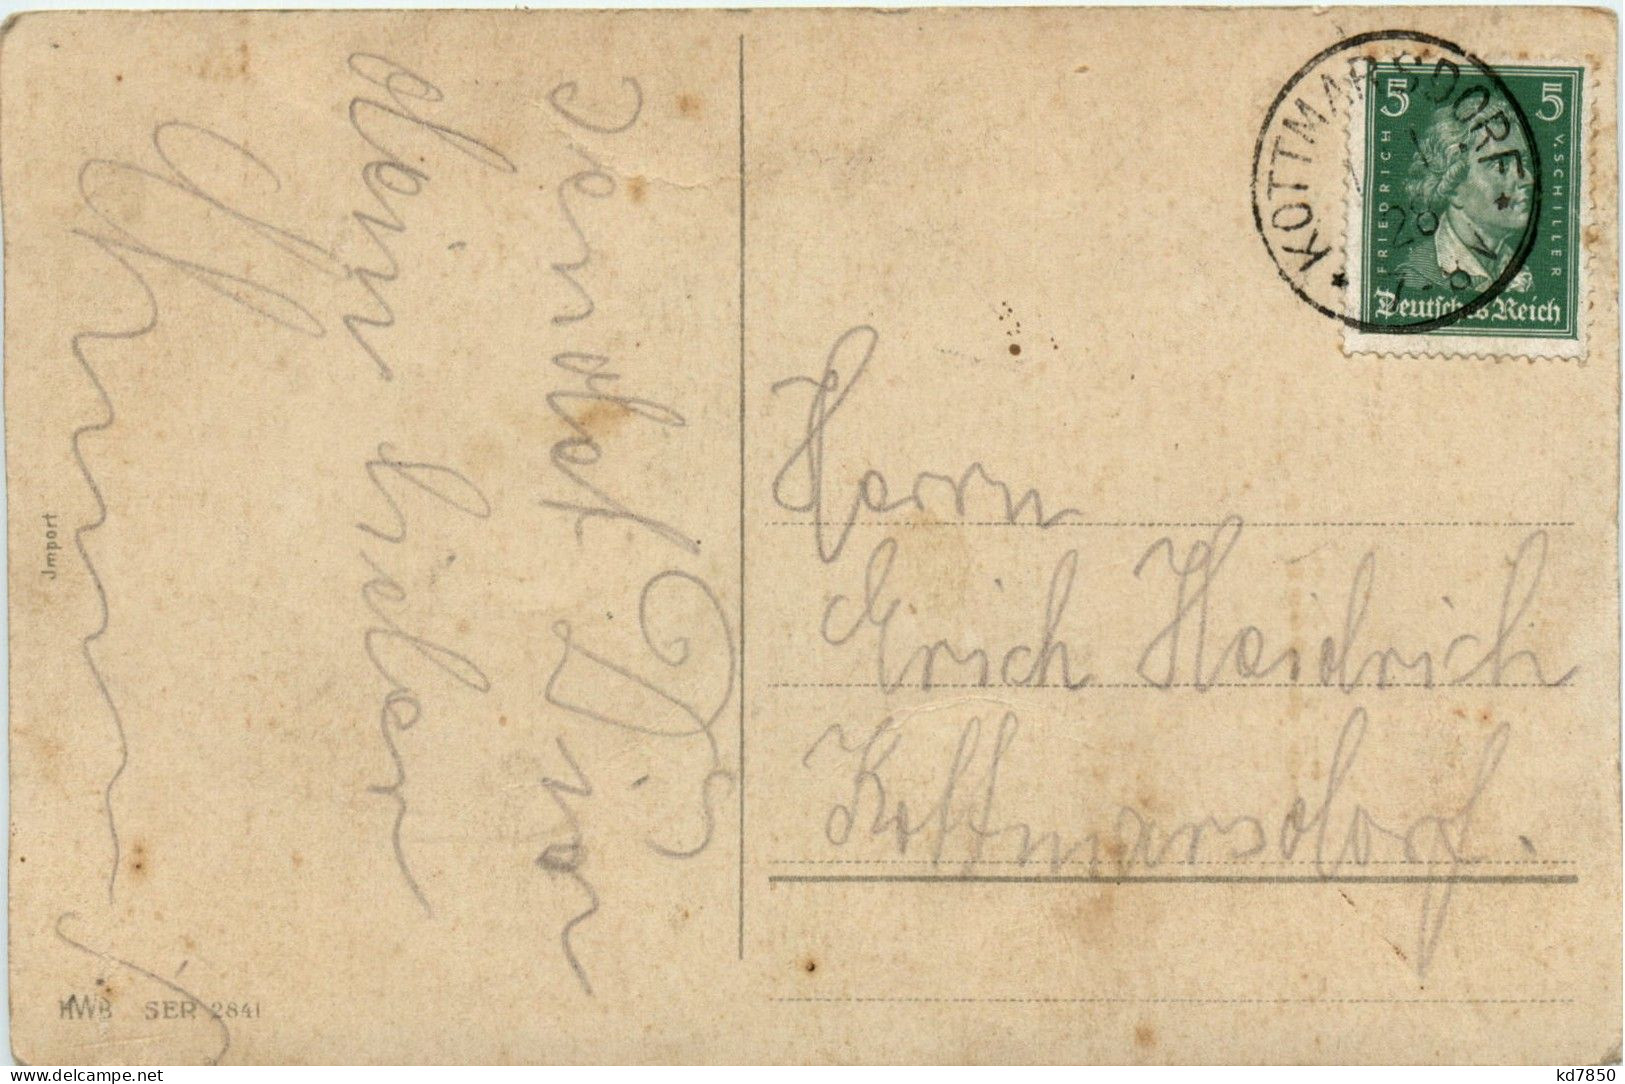 sendet Dir
dein lieber
Import
HWB SER 2841
KOTTMARSDORF
28
7-8 V
5 5
FRIEDRICH V. SCHILLER
Deutsches Reich
Herrn
Erich Heidrich
Kottmarsdorf.
www.delcampe.net
kd7850